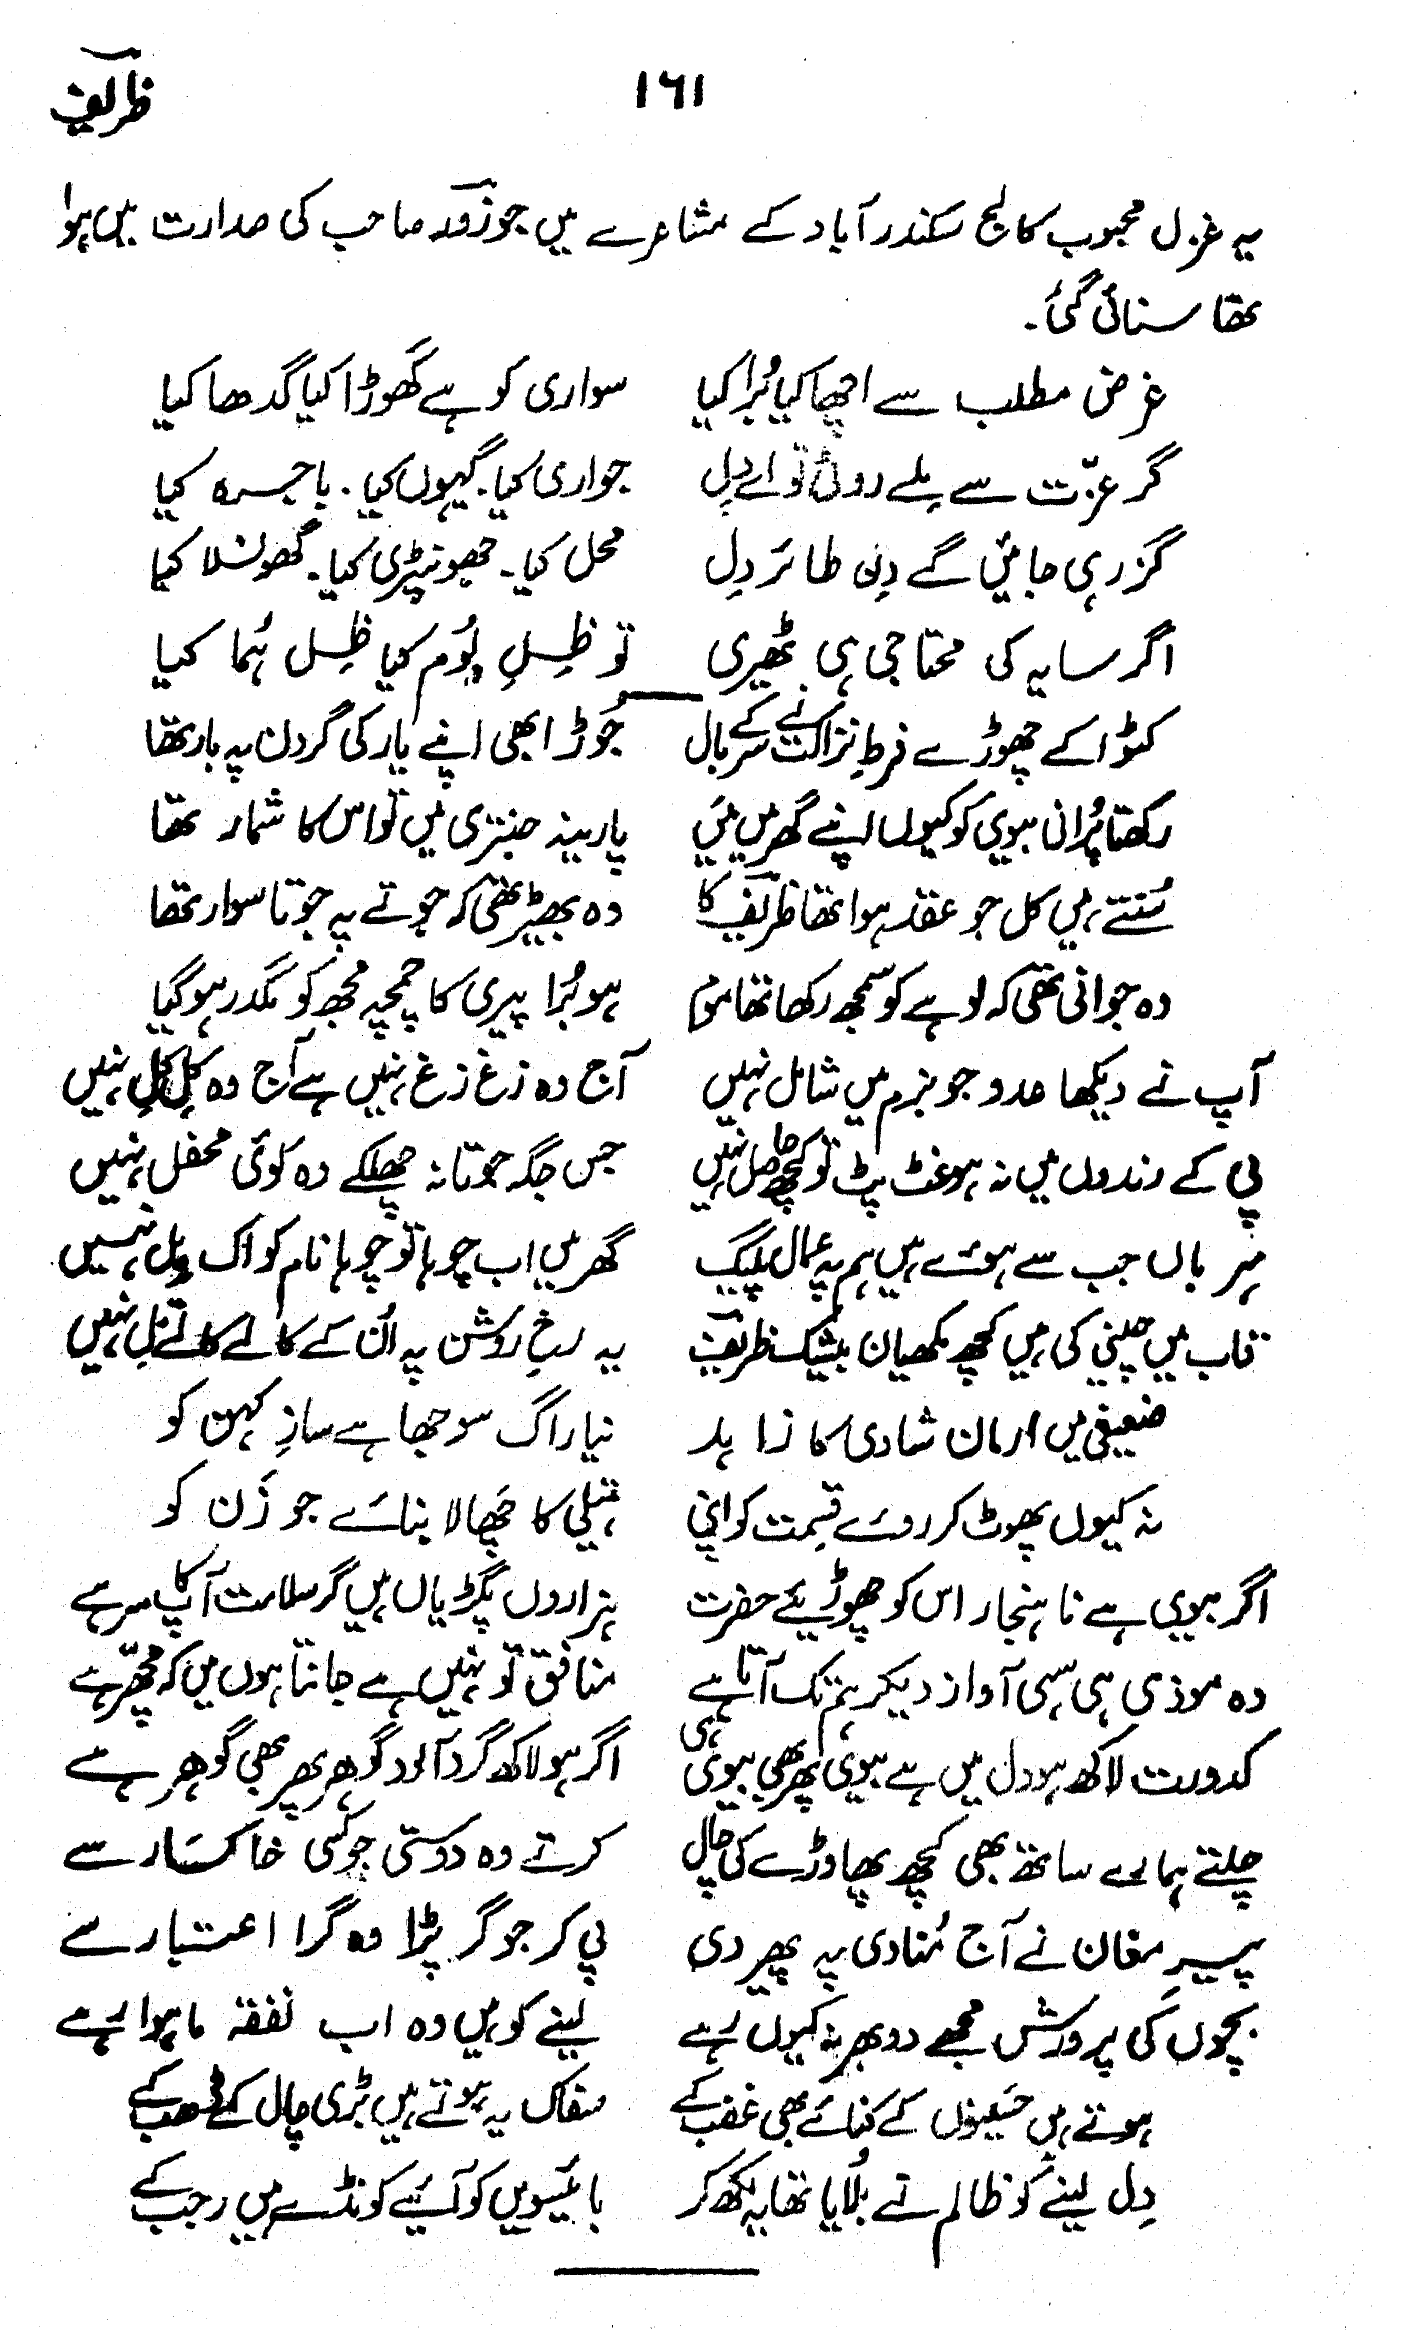 ظریف
۱۶۱
یہ غزل محبوب کالج سکندرآباد کے مشاعرے میں جو زورؔ صاحب کی صدارت میں ہوا
تھا سنائی گئی۔
غرض مطلب سے اچھا کیا بُرا کیا سواری کو ہے گھوڑا کیا گدھا کیا
گر عزّت سے ملے روٹی تو اے دِل جواری کیا۔ گیہوں کیا۔ باجرہ کیا
گزر ہی جائیں گے دِن طائر دِل محل کیا۔ جھونپڑی کیا۔ گھونسلا کیا
اگر سایہ کی محتاجی ہی ٹھیری تو ظِلِ بُوم کیا ظِل ہُما کیا
کٹوا کے چھوڑے فرطِ نزاکت نے سر کے بال جُوڑا بھی اپنے یار کی گردن پہ بار تھا
رکھتا پُرانی بیوی کو کیوں اپنے گھر میں مَیں پارینہ جنتری میں تو اس کا شمار تھا
سُنتے ہیں کل جو عقد ہوا تھا ظریفؔ کا وہ بھیڑ تھی کہ جوتے پہ جوتا سوار تھا
وہ جوانی تھی کہ لوہے کو سمجھ رکھا تھا موم ہو بُرا پیری کا چمچہ مجھ کو مگدر ہوگیا
آپ نے دیکھا عدو جو بزم میں شامل نہیں آج وہ زغ زغ نہیں ہے آج وہ کِل کِل نہیں
پی کے رندوں میں نہ ہو غٹ پٹ تو کچھ حاصل نہیں جس جگہ جوتا نہ چھلکے وہ کوئی محفل نہیں
مہرباں جب سے ہوئے ہیں ہم پہ عمال پلیگ گھر میں اب چوہا تو چوہا نام کو اک بِل نہیں
قاب میں چینی کی ہیں کچھ مکھیاں بیشک ظریفؔ یہ رخِ روشن پہ اُن کے کالے کالے تِل نہیں
ضعیفی میں ارمان شادی کا زاہد نیا راگ سوجھا ہے سازِ کہن کو
نہ کیوں پھوٹ کر روئے قِسمت کو اپنی ہتیلی کا چَھالا بنائے جو زَن کو
اگر بیوی ہے ناہنجار اس کو چھوڑیئے حضرت ہزاروں پگڑیاں ہیں گر سلامت آپ کا سر ہے
وہ موذی ہی سہی آواز دیکر ہم تک آتا ہے منافق تو نہیں ہے جانتا ہوں میں کہ مچھّر ہے
کدورت لاکھ ہو دل میں ہے بیوی پھر بھی بیوی ہی اگر ہو لاکھ گرد آلود گوہر پھر بھی گوہر ہے
چلتے ہمارے ساتھ بھی کچھ پھاوڑے کی چال کرتے وہ دوستی جو کسی خاکسار سے
پیرِ مغان نے آج مُنادی یہ پھیر دی پی کر جو گر پڑا وہ گرا اعتبار سے
بچوں کی پرورش مجھے دوبھر نہ کیوں رہے لینے کو ہیں وہ اب نفقہ ماہوار ہے
ہوتے ہیں حَسینوں کے کنائے بھی غضب کے سفاک یہ ہوتے ہیں بڑی چال کے ڈھب کے
دِل لینے کو ظالم نے بُلایا تھا یہ لکھ کر بائیسویں کو آئیے کونڈے ہیں رجب کے